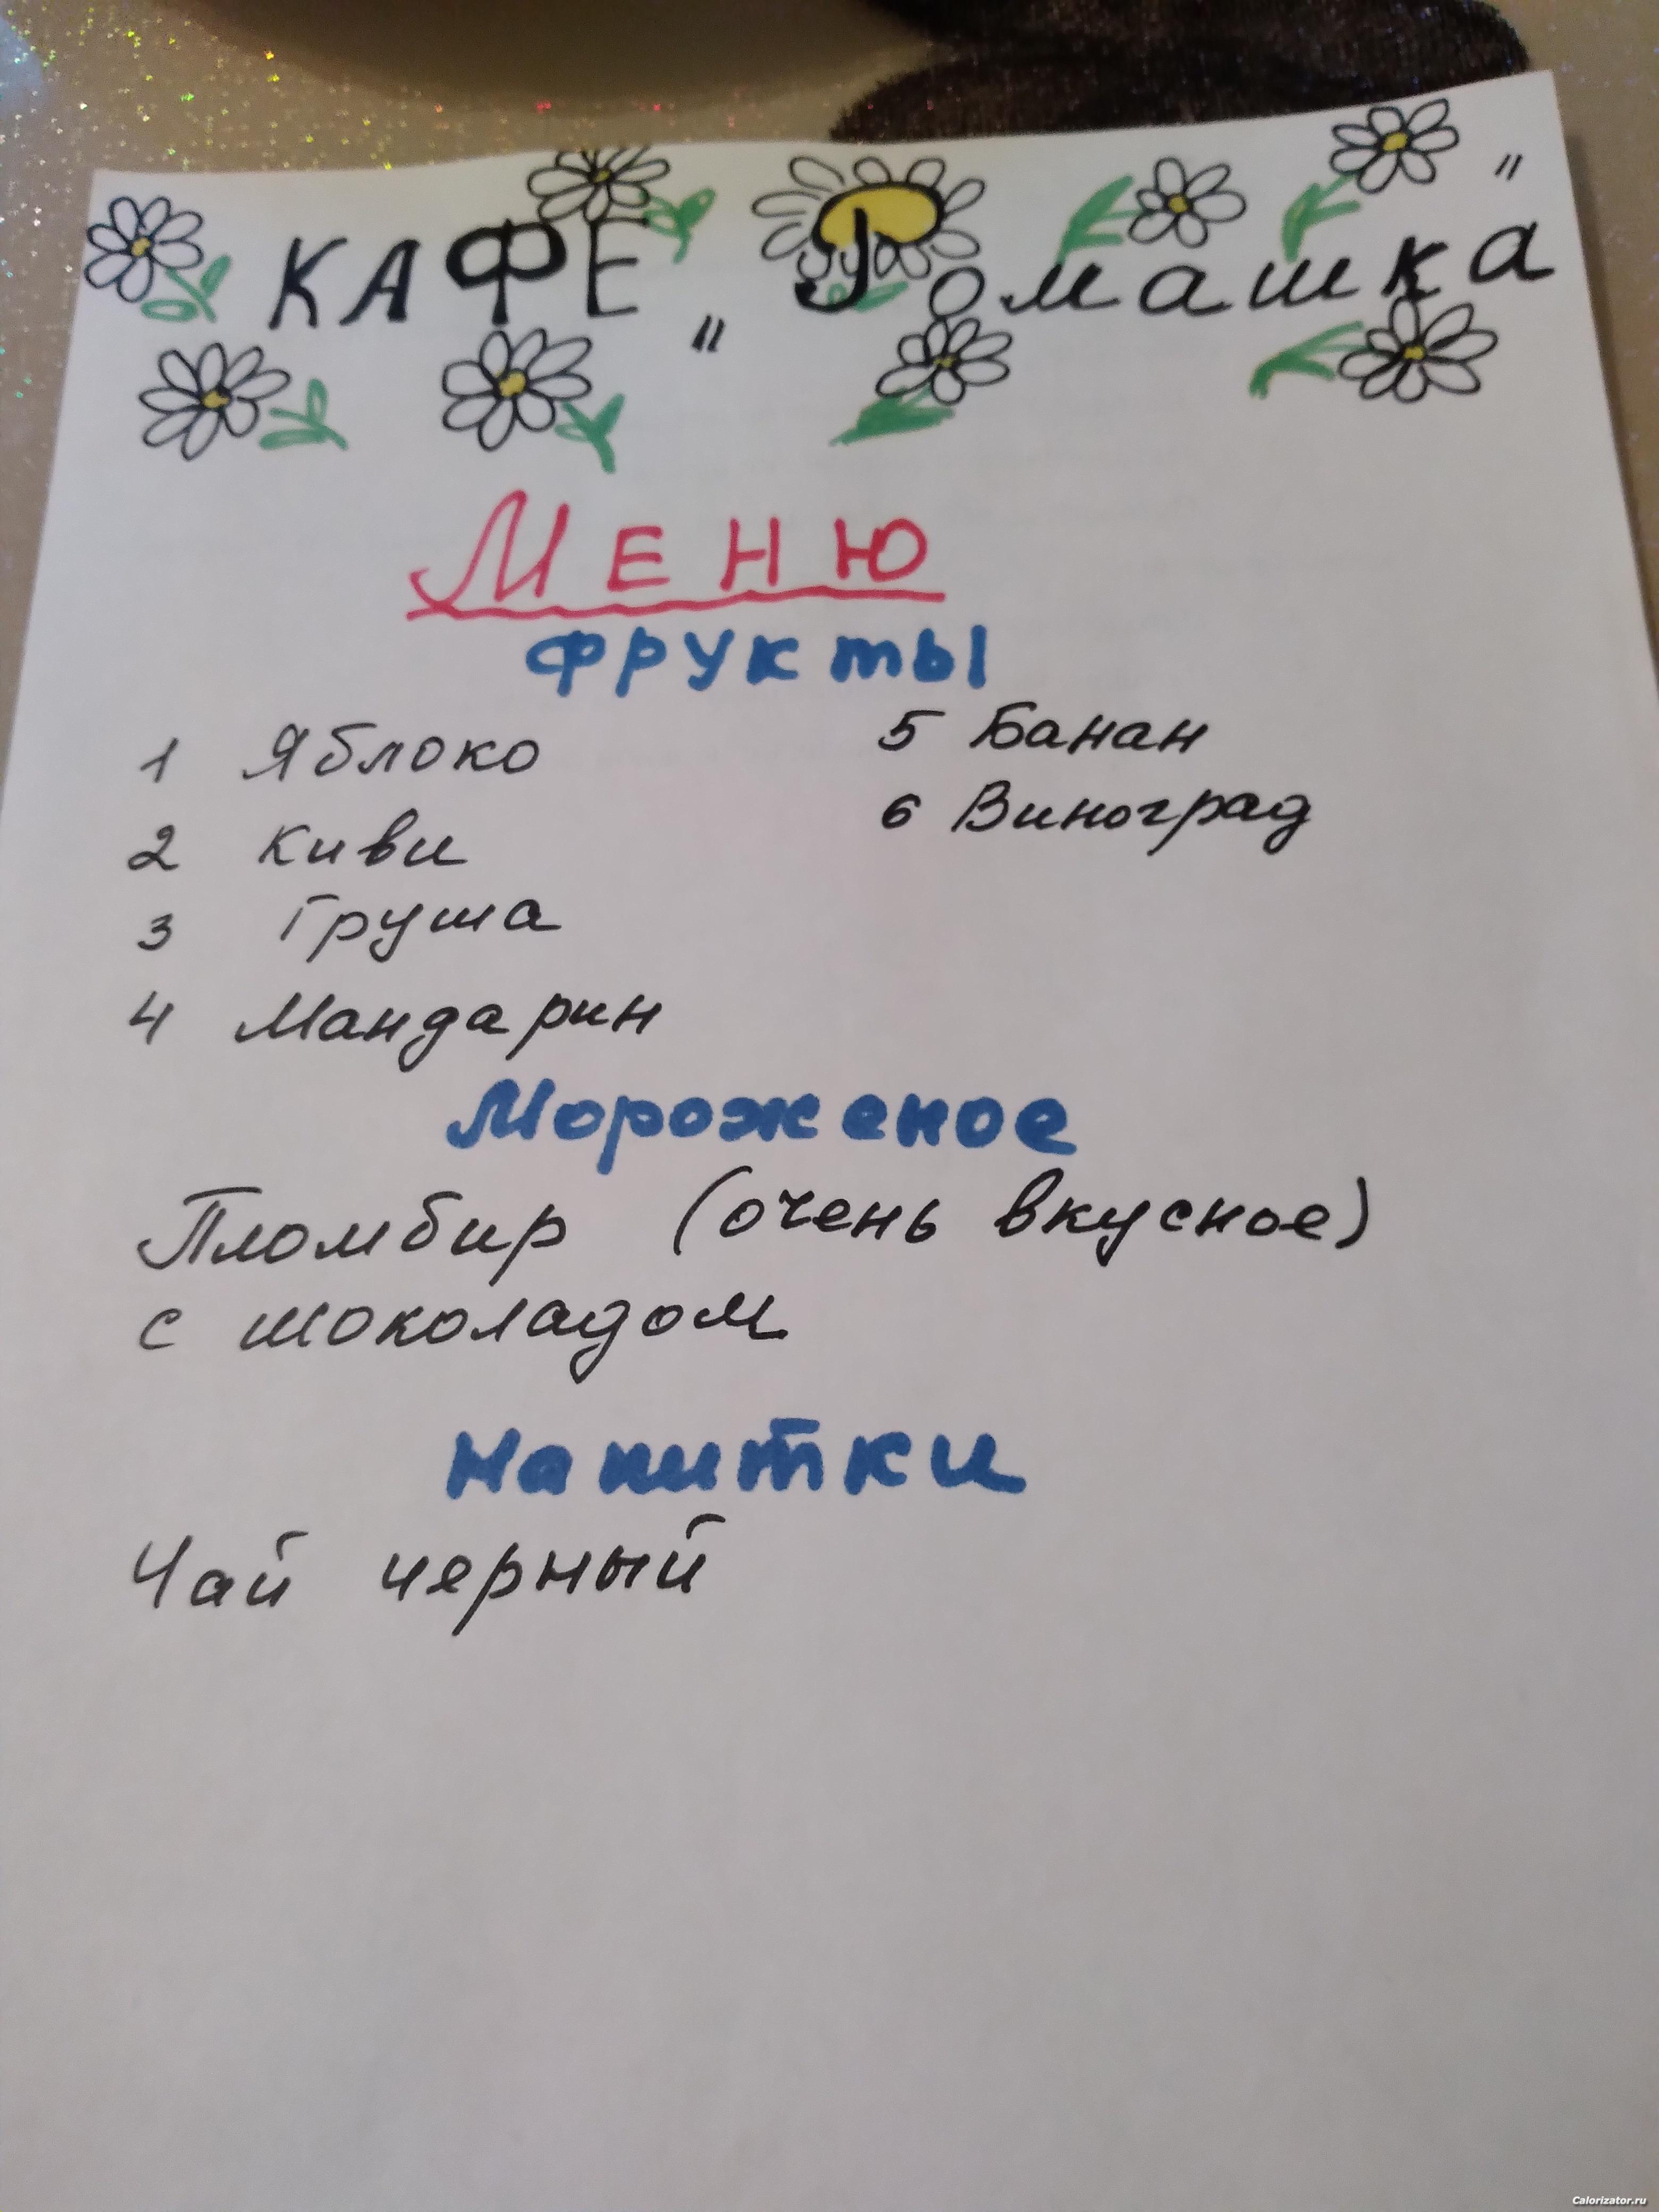 КАФЕ „Ромашка"
Меню
Фрукты
1 Яблоко
2 Киви
3 Груша
4 Мандарин
5 Банан
6 Виноград
Мороженое
Пломбир (очень вкусное)
с шоколадом
Напитки
Чай черный
Calorizator.ru